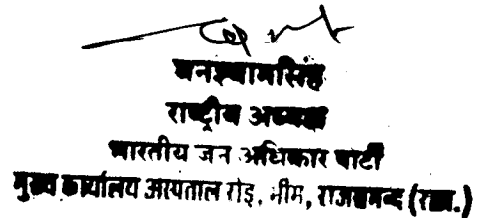 घनश्यामसिंह
राष्ट्रीय अध्यक्ष
भारतीय जन अधिकार पार्टी
मुख्य कार्यालय अस्पताल रोड़, भीम, राजसमन्द (राज.)